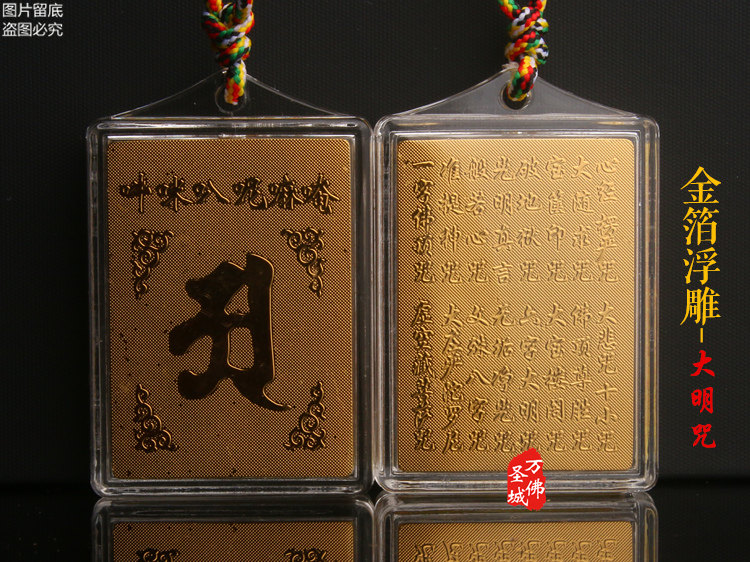 图片留底
盗图必究
唵嘛呢叭咪吽
心经 楞严咒 大悲咒十小咒
大随求咒 佛顶尊胜咒
宝箧印咒 大宝楼阁咒
破地狱咒 六字大明咒
光明真言 无垢净光咒
般若心咒 文殊八字咒
准提神咒 陀罗尼
一字佛顶咒 虚空藏菩萨咒
金箔浮雕-大明咒
万佛圣城